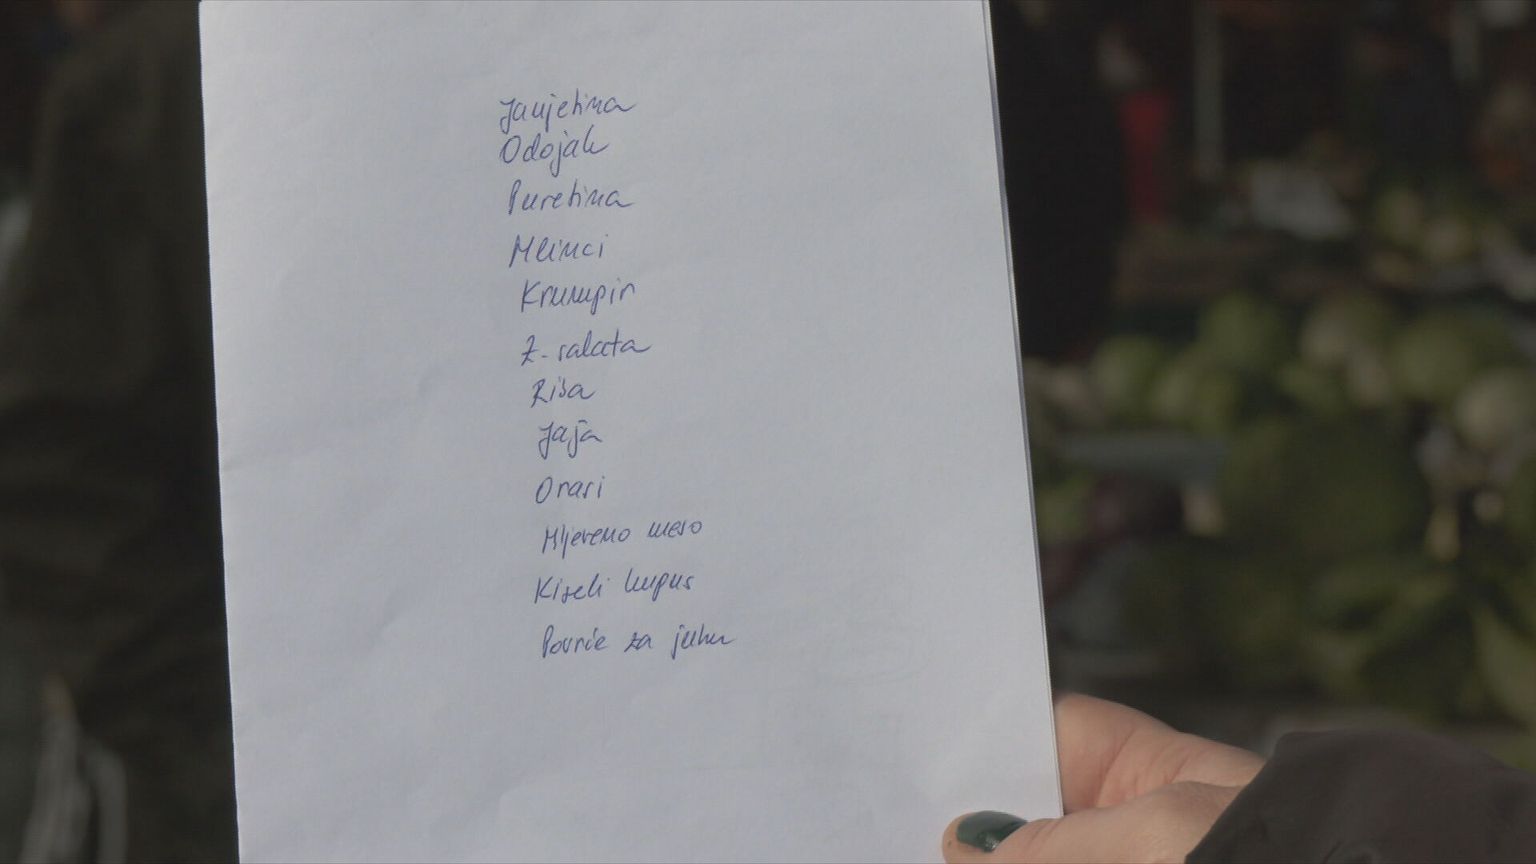 Janjetina
Odojak
Puretina
Mlinci
Krumpir
Z. salata
Riba
Jaja
Orasi
Mljeveno meso
Kiseli kupus
Povrće za juhu